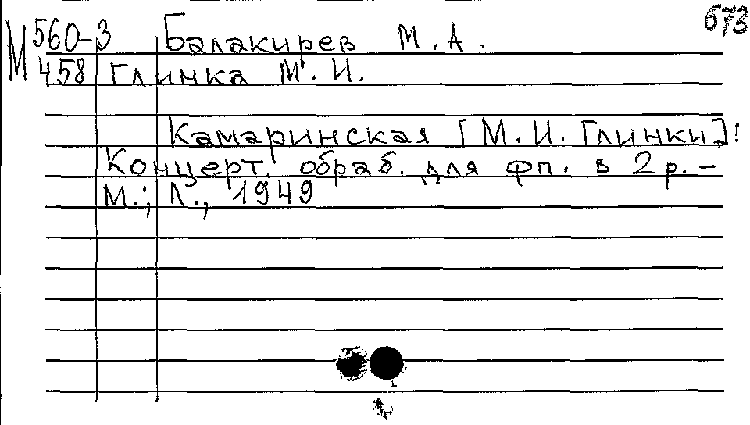 673
М 560-3 Балакирев М. А.
458 Глинка М. И.
Камаринская [М. И. Глинки]:
Концерт. обраб. для фп. в 2 р. -
М.; Л., 1949